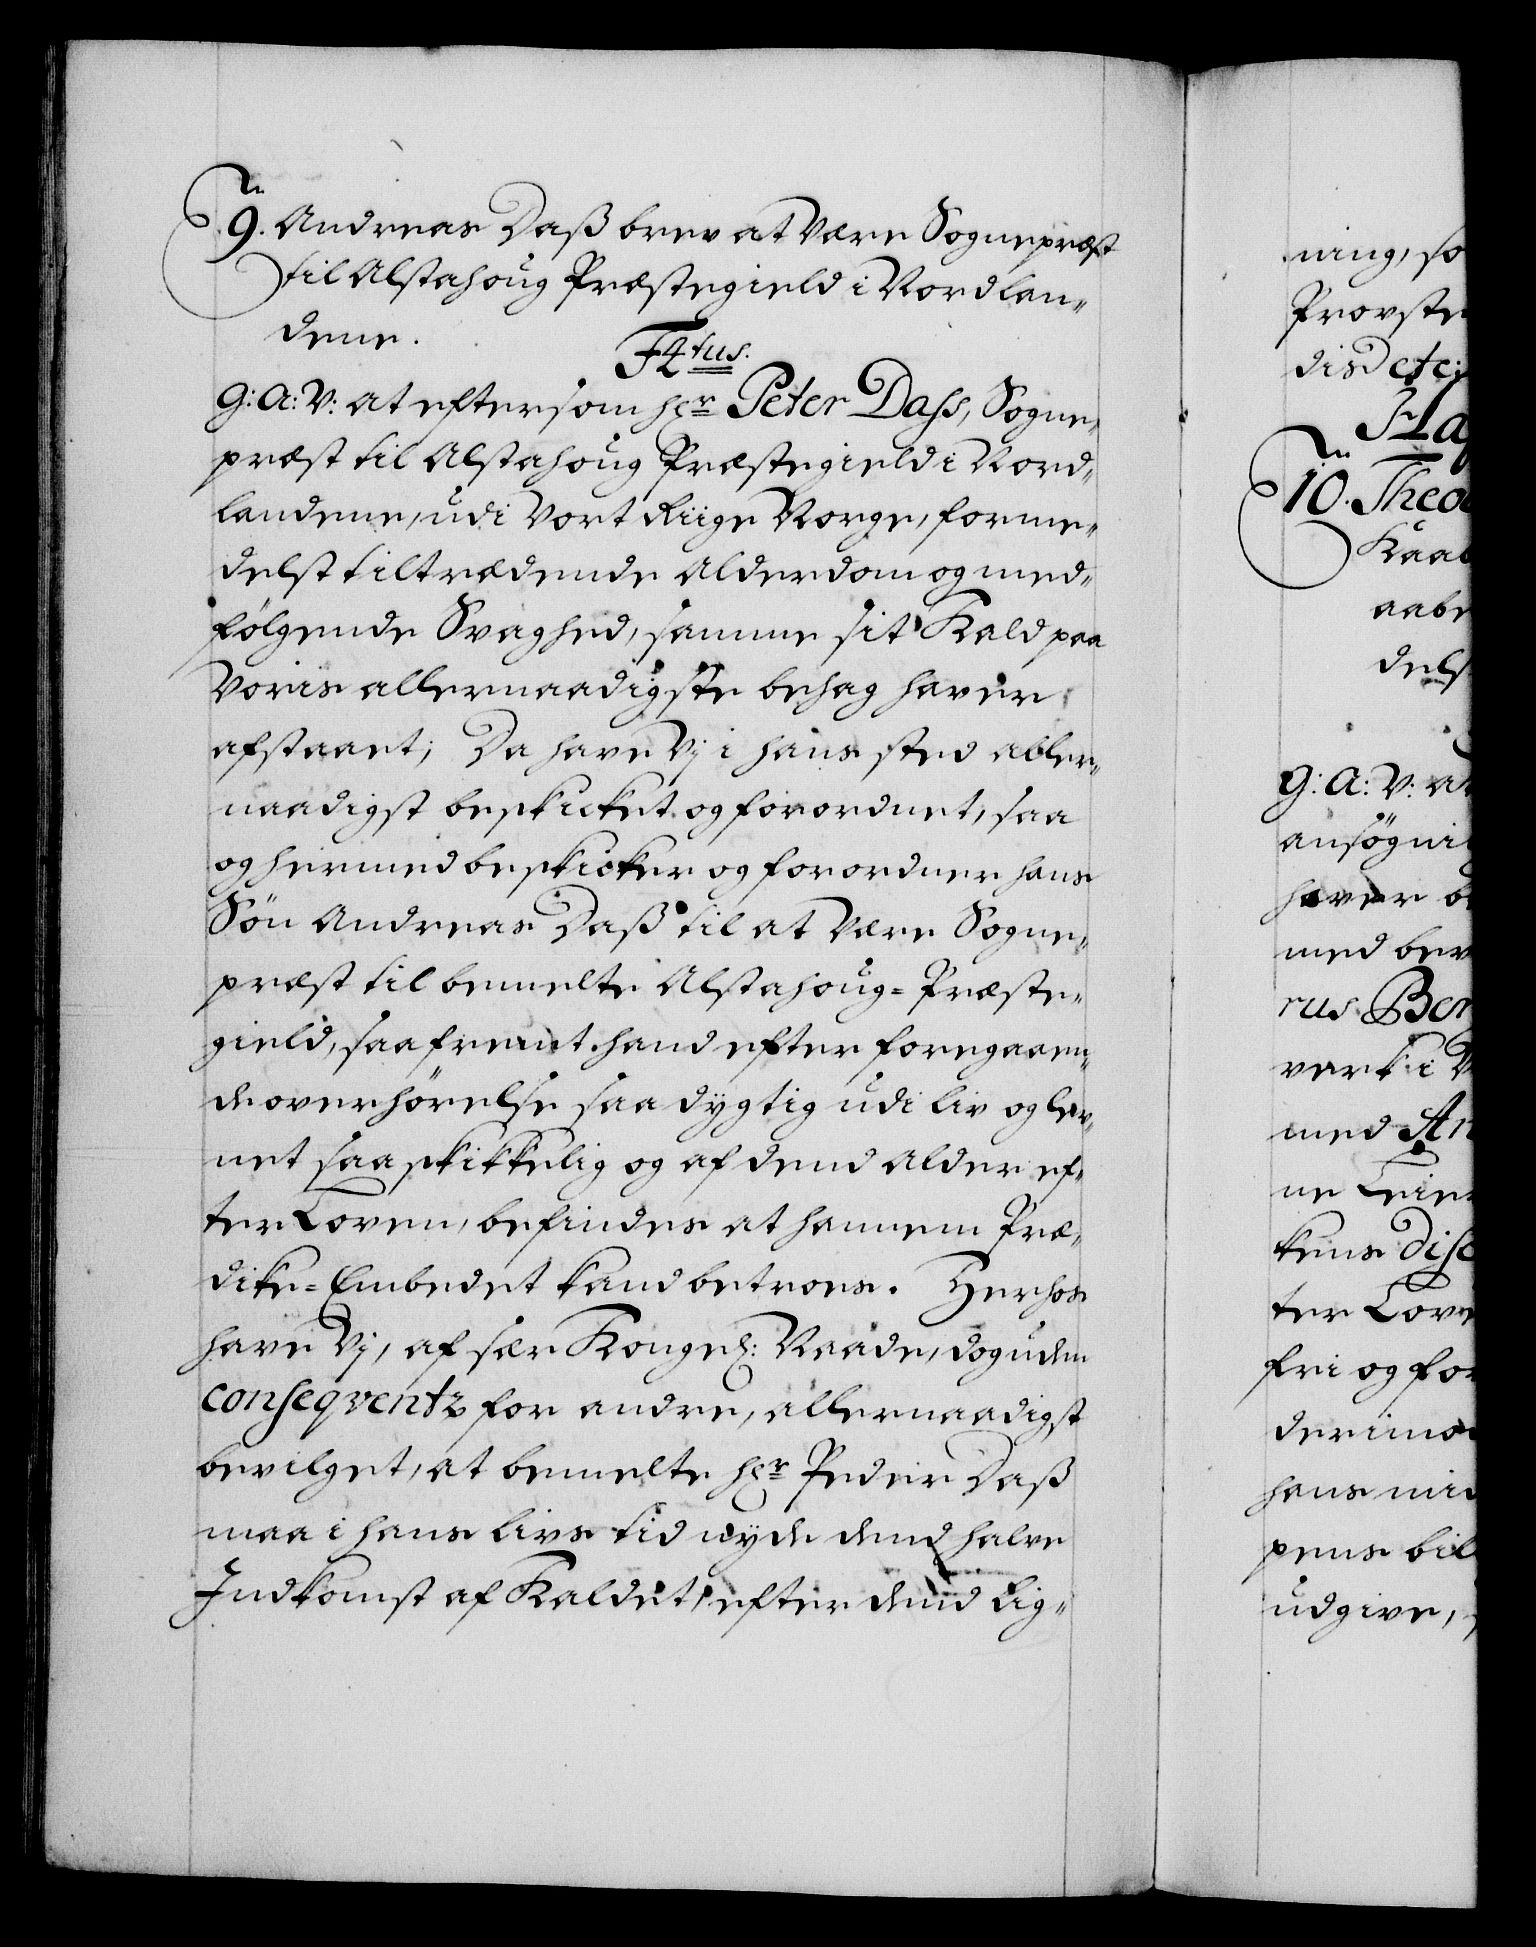 9. Andreas Daß brev at være Sognepræst
til Alstahoug Præstegield i Nordlan„
dene.
F4tus.
G: A: V: at eftersom hr Peter Dass, Sogne„
præst til Alstahoug Præstegield i Nord„
landene, udi Vort Riige Norge, forme„
delst tiltrædende Alderdom og med„
følgende Svaghed, samme sit Kald paa
Voris allernaadigste behag haver
afstaaet; Da have Vj i hans sted aller„
naadigst beskicket og forordnet, saa
og hermed beskicker og forordner hans
Søn Andreas Daß til at være Sogne„
præst til bemelte Alstahoug-Præste„
gield, saafremt hand efter foregaaen„
de overhørelse saa dygtig udi liv og lev„
net saa skikkelig og af dend Alder ef„
ter Loven, befindes at hannem Præ„
dike-Embedet kand betroes. Herhos
have Vj, af sær Kongel: Naade, dog uden
conseqventz for andre, allernaadigst
bevilget, at bemelte hr Peder Daß
maa i hans livs tid nyde dend halve
Indkomst af Kaldet, efter dend Lig„
ning, so
Provste
dis Dete:
Ha
10. Theo
Kaab
aabe
dels
G: A: V: at
ansøgni
haver be
med bev
rus Ber
verk i
med An
ne Leier
kens Disc
ter Love
fri og for
derimo
hans mi
pens bil
udgive,